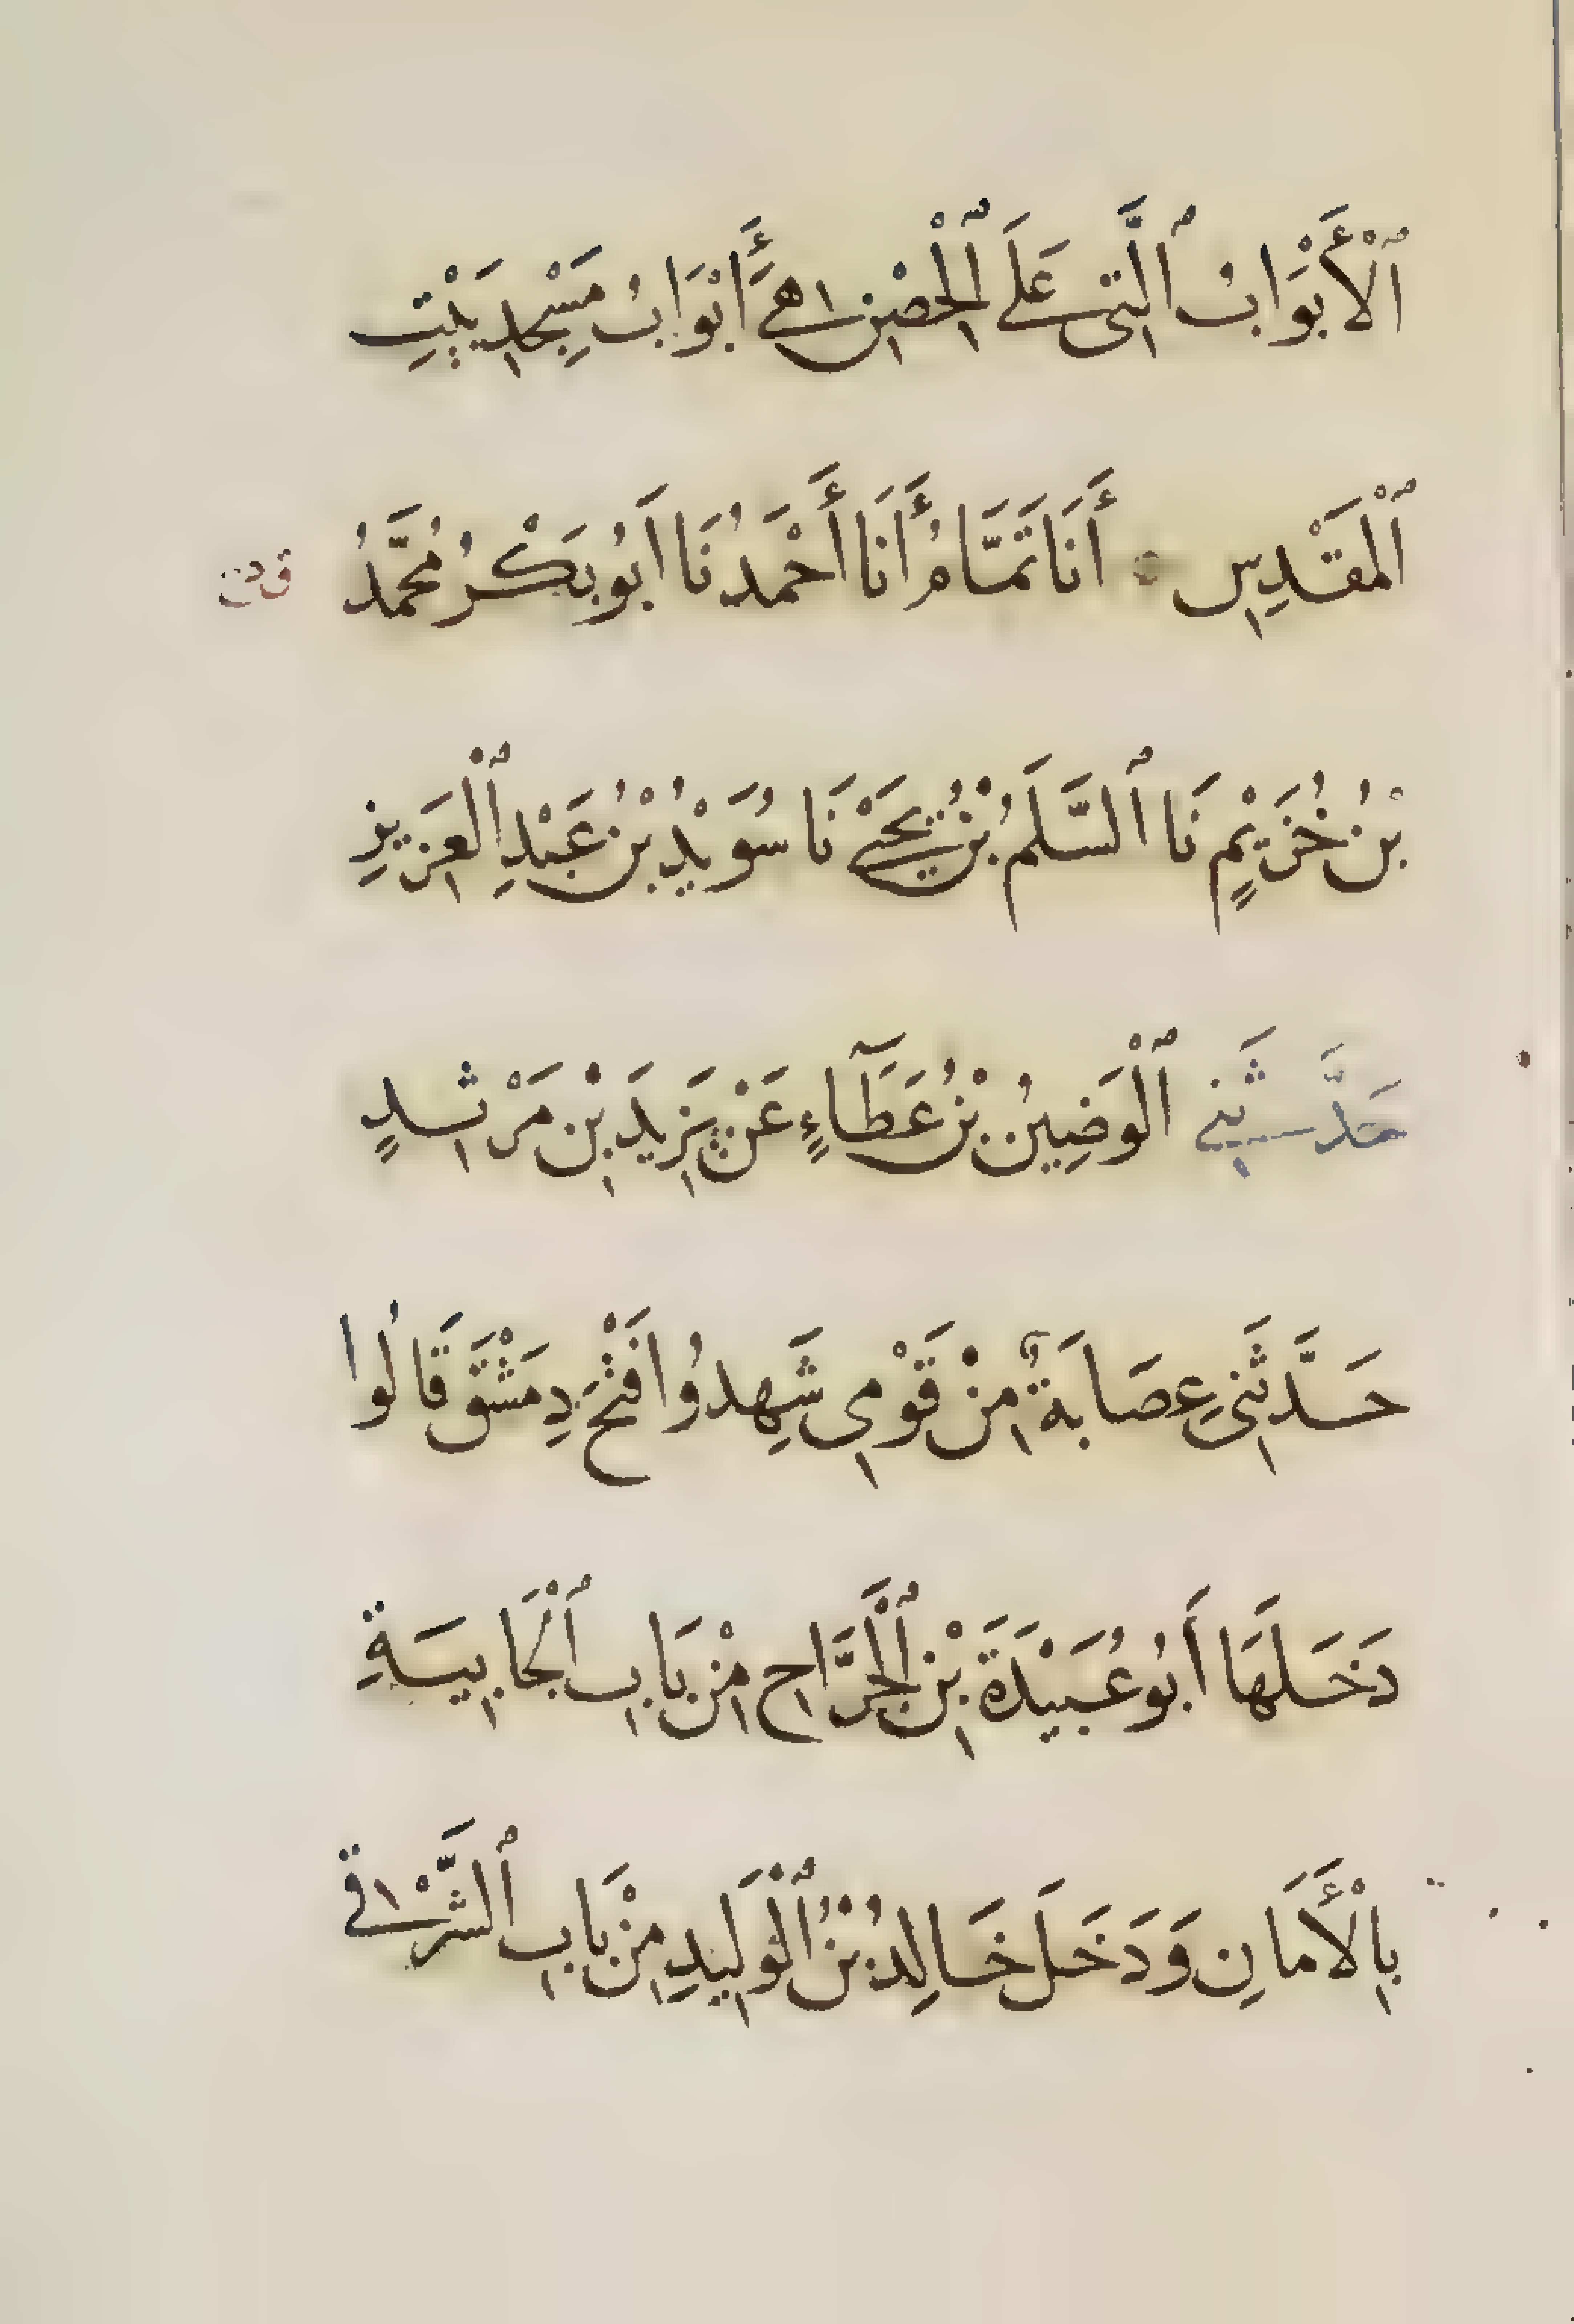 ٱلْأَبْوَابُ ٱلَّتِي عَلَى ٱلْحِصْنِ هِيَ أَبْوَابُ مَسْجِدِ بَيْتِ
ٱلْمَقْدِسِ أَنَا تَمَّامُ أَنَا أَحْمَدُ نَا أَبُو بَكْرُ مُحَمَّدُ
بْنُ خُزَيْمٍ نَا ٱلسَّلَمُ بْنُ يَحْيَى نَا سُوَيْدُ بْنُ عَبْدِ ٱلْعَزِيزِ
حَدَّثَنِي ٱلْوَضِينُ بْنُ عَطَآءٍ عَنْ يَزِيدَ بْنِ مَرْثَدٍ
حَدَّثَنِي عِصَابَةٌ مِنْ قَوْمِي شَهِدُوا فَتْحَ دِمَشْقَ قَالُوا
دَخَلَهَا أَبُو عُبَيْدَةَ بْنِ ٱلْجَرَّاحِ مِنْ بَابِ ٱلْجَابِيَةِ
بِالْأَمَانِ وَدَخَلَ خَالِدُ بْنُ ٱلْوَلِيدِ مِنْ بَابِ ٱلشَّرْقِي